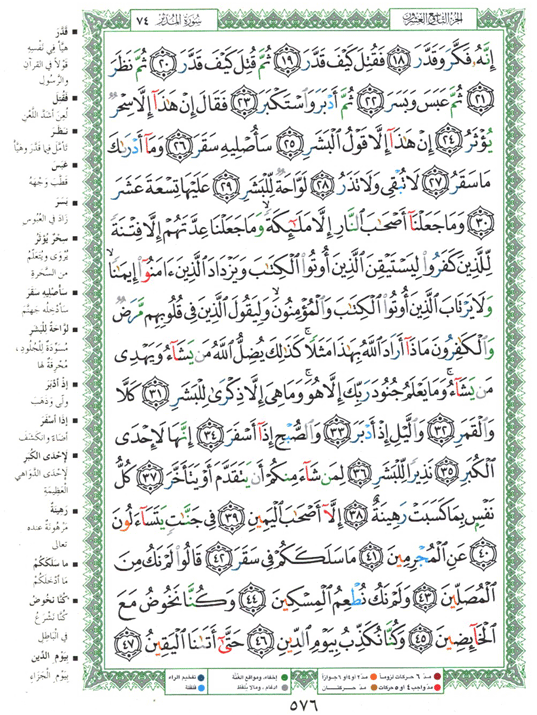 الجزء التاسع والعشرون
سورة المدثر ٧٤
إِنَّهُۥ فَكَّرَ وَقَدَّرَ ﴿١٨﴾ فَقُتِلَ كَيْفَ قَدَّرَ ﴿١٩﴾ ثُمَّ قُتِلَ كَيْفَ قَدَّرَ ﴿٢٠﴾ ثُمَّ نَظَرَ
﴿٢١﴾ ثُمَّ عَبَسَ وَبَسَرَ ﴿٢٢﴾ ثُمَّ أَدْبَرَ وَٱسْتَكْبَرَ ﴿٢٣﴾ فَقَالَ إِنْ هَٰذَآ إِلَّا سِحْرٌ
يُؤْثَرُ ﴿٢٤﴾ إِنْ هَٰذَآ إِلَّا قَوْلُ ٱلْبَشَرِ ﴿٢٥﴾ سَأُصْلِيهِ سَقَرَ ﴿٢٦﴾ وَمَآ أَدْرَىٰكَ
مَا سَقَرُ ﴿٢٧﴾ لَا تُبْقِى وَلَا تَذَرُ ﴿٢٨﴾ لَوَّاحَةٌ لِّلْبَشَرِ ﴿٢٩﴾ عَلَيْهَا تِسْعَةَ عَشَرَ
﴿٣٠﴾ وَمَا جَعَلْنَآ أَصْحَٰبَ ٱلنَّارِ إِلَّا مَلَٰٓئِكَةً ۙ وَمَا جَعَلْنَا عِدَّتَهُمْ إِلَّا فِتْنَةً
لِّلَّذِينَ كَفَرُوا۟ لِيَسْتَيْقِنَ ٱلَّذِينَ أُوتُوا۟ ٱلْكِتَٰبَ وَيَزْدَادَ ٱلَّذِينَ ءَامَنُوٓا۟ إِيمَٰنًا ۙ
وَلَا يَرْتَابَ ٱلَّذِينَ أُوتُوا۟ ٱلْكِتَٰبَ وَٱلْمُؤْمِنُونَ ۙ وَلِيَقُولَ ٱلَّذِينَ فِى قُلُوبِهِم مَّرَضٌ
وَٱلْكَٰفِرُونَ مَاذَآ أَرَادَ ٱللَّهُ بِهَٰذَا مَثَلًا ۚ كَذَٰلِكَ يُضِلُّ ٱللَّهُ مَن يَشَآءُ وَيَهْدِى
مَن يَشَآءُ ۚ وَمَا يَعْلَمُ جُنُودَ رَبِّكَ إِلَّا هُوَ ۚ وَمَا هِىَ إِلَّا ذِكْرَىٰ لِلْبَشَرِ ﴿٣١﴾ كَلَّا
وَٱلْقَمَرِ ﴿٣٢﴾ وَٱلَّيْلِ إِذْ أَدْبَرَ ﴿٣٣﴾ وَٱلصُّبْحِ إِذَآ أَسْفَرَ ﴿٣٤﴾ إِنَّهَا لَإِحْدَى
ٱلْكُبَرِ ﴿٣٥﴾ نَذِيرًا لِّلْبَشَرِ ﴿٣٦﴾ لِمَن شَآءَ مِنكُمْ أَن يَتَقَدَّمَ أَوْ يَتَأَخَّرَ ﴿٣٧﴾ كُلُّ
نَفْسٍۭ بِمَا كَسَبَتْ رَهِينَةٌ ﴿٣٨﴾ إِلَّآ أَصْحَٰبَ ٱلْيَمِينِ ﴿٣٩﴾ فِى جَنَّٰتٍ يَتَسَآءَلُونَ
﴿٤٠﴾ عَنِ ٱلْمُجْرِمِينَ ﴿٤١﴾ مَا سَلَكَكُمْ فِى سَقَرَ ﴿٤٢﴾ قَالُوا۟ لَمْ نَكُ مِنَ
ٱلْمُصَلِّينَ ﴿٤٣﴾ وَلَمْ نَكُ نُطْعِمُ ٱلْمِسْكِينَ ﴿٤٤﴾ وَكُنَّا نَخُوضُ مَعَ
ٱلْخَآئِضِينَ ﴿٤٥﴾ وَكُنَّا نُكَذِّبُ بِيَوْمِ ٱلدِّينِ ﴿٤٦﴾ حَتَّىٰٓ أَتَىٰنَا ٱلْيَقِينُ ﴿٤٧﴾
■ قَدَّرَ
هَيَّأَ فِي نَفْسِهِ
قَوْلًا فِي القُرْآنِ
وَالرَّسُولِ
■ فَقُتِلَ
لُعِنَ أَشَدَّ اللَّعْنِ
■ نَظَرَ
تَأَمَّلَ فِيمَا قَدَّرَ وَهَيَّأَ
■ عَبَسَ
قَطَّبَ وَجْهَهُ
■ بَسَرَ
زَادَ فِي العُبُوسِ
■ سِحْرٌ يُؤْثَرُ
يُرْوَى وَيُتَعَلَّمُ
مِنَ السَّحَرَةِ
■ سَأُصْلِيهِ سَقَرَ
سَأُدْخِلُهُ جَهَنَّمَ
■ لَوَّاحَةٌ لِلْبَشَرِ
مُسَوِّدَةٌ لِلْجُلُودِ،
مُحْرِقَةٌ لَهَا
■ إِذْ أَدْبَرَ
وَلَّى وَذَهَبَ
■ إِذَا أَسْفَرَ
أَضَاءَ وَانْكَشَفَ
■ لَإِحْدَى الكُبَرِ
لَإِحْدَى الدَّوَاهِي
العَظِيمَةِ
■ رَهِينَةٌ
مَرْهُونَةٌ عِنْدَهُ
تَعَالَى
■ مَا سَلَكَكُمْ
مَا أَدْخَلَكُمْ
■ كُنَّا نَخُوضُ
كُنَّا نَشْرَعُ
فِي البَاطِلِ
■ بِيَوْمِ الدِّينِ
بِيَوْمِ الجَزَاءِ
مدّ ٦ حركات لزوماً مدّ ٢ أو ٤ أو ٦ جوازاً
مدّ واجب ٤ أو ٥ حركات مدّ حركتان
إخفاء، ومواقع الغنّة
إدغام، وما لا يُلفظ
تفخيم الراء
قلقلة
٥٧٦